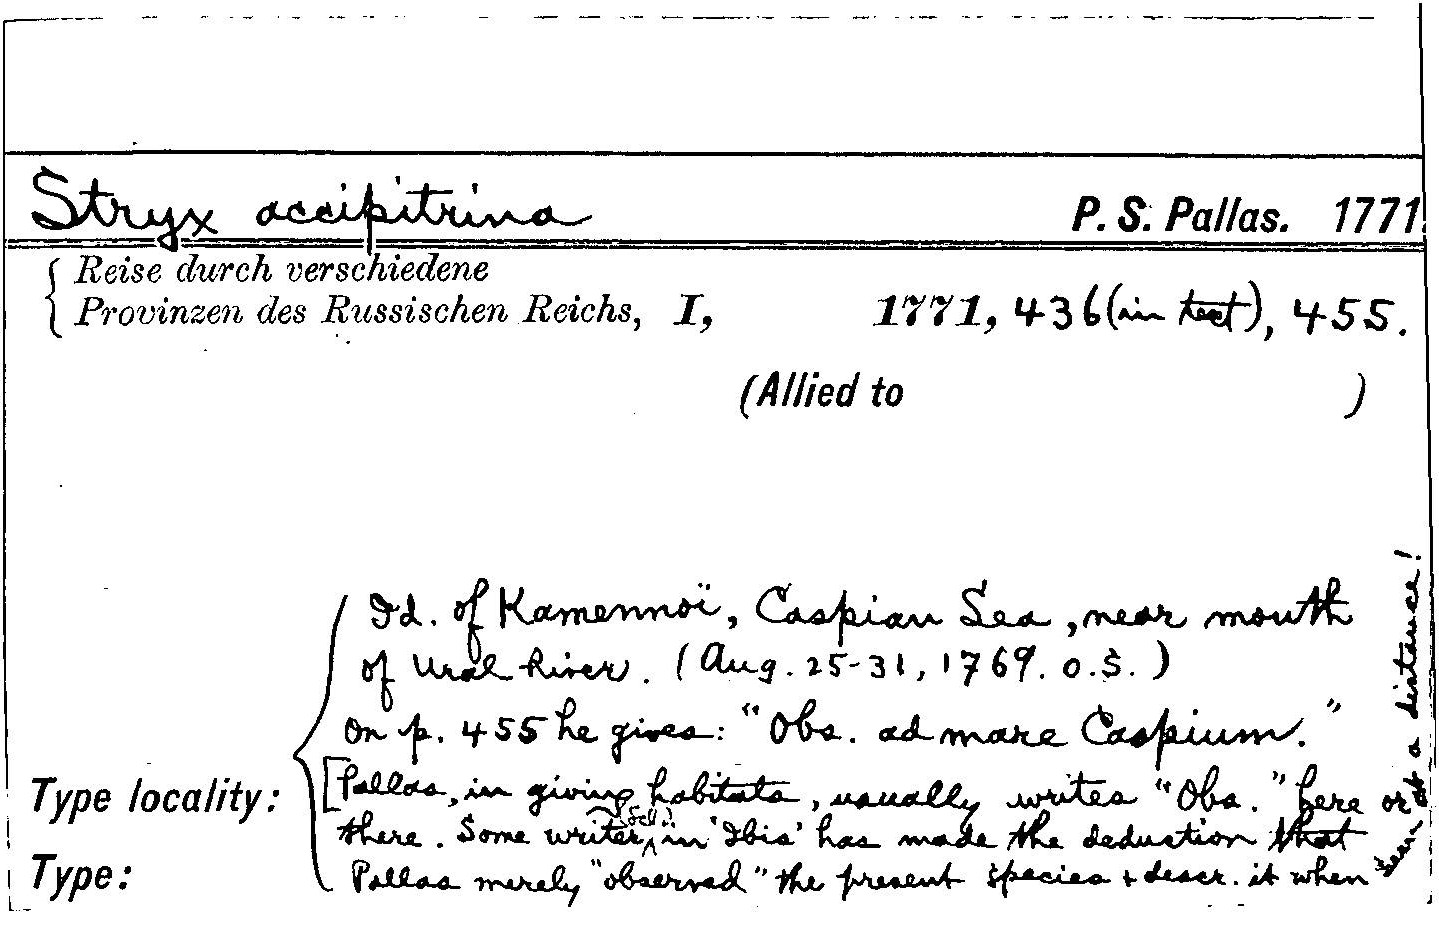 Stryx accipitrina P. S. Pallas. 1771
Reise durch verschiedene
Provinzen des Russischen Reichs, I, 1771, 436 (in text), 455.
(Allied to )
Id. of Kamennoï, Caspian Sea, near mouth
of Ural River. (Aug. 25-31, 1769. O.S.)
On p. 455 he gives: "Obs. ad mare Caspium."
Type locality: [Pallas, in giving habitats, usually writes "Obs." here or
there. Some writer in 'Ibis' has made the deduction that
Type: Pallas merely "observed" the present species & descr. it when
seen at a distance!